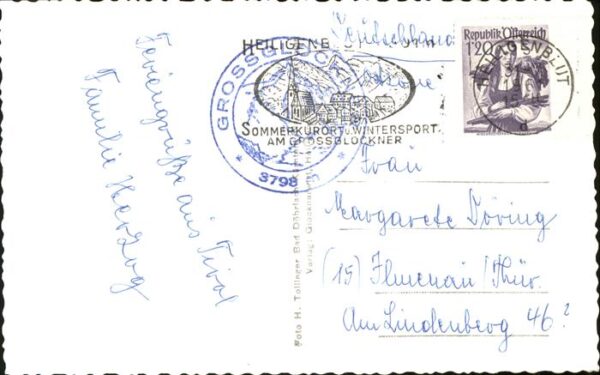 Feriengrüße aus Tirol
Familie Herzog
Deutschland
HEILIGENBLUT
SOMMERKURORT U. WINTERSPORT
AM GROSSGLOCKNER
GROSSGLOCKNER
3798
Republik Österreich
1'20
HEILIGENBLUT
Foto H. Tollinger Bad
Verlag:
Frau
Margarete Döring
(15) Ilmenau/Thür.
Am Lindenberg 46?